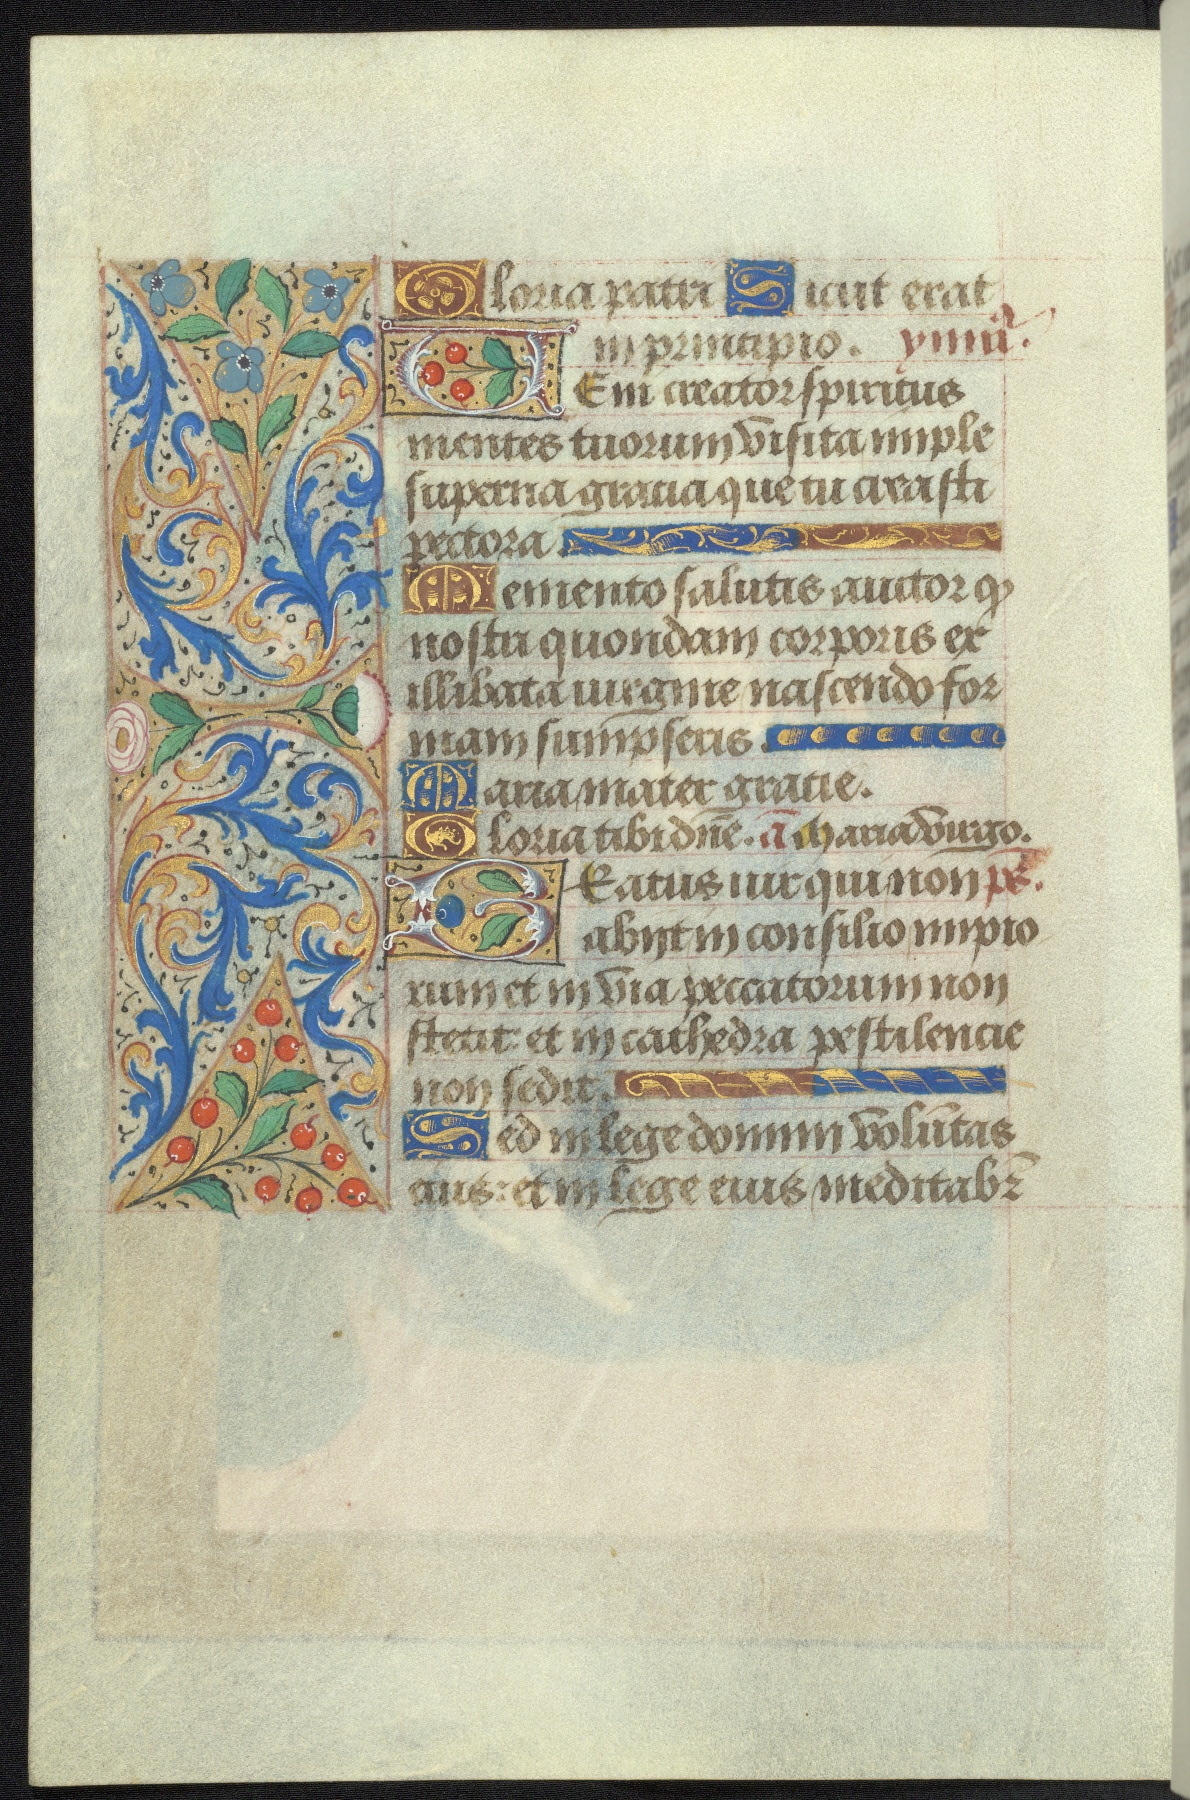 Gloria patri Sicut erat
in principio. ymnꝰ.
VEni creator spiritus
mentes tuorum visita imple
superna gratia que tu creasti
pectora.
Memento salutis auctor ꝙ
nostri quondam corporis ex
illibata uirgine nascendo for
mam sūmpseris.
Maria mater gratie.
Gloria tibi dñe. ā Maria virgo.
BEatus uir qui non pš.
abijt in consilio impio
rum et in via peccatorum non
stetit: et in cathedra pestilencie
non sedit.
Sed in lege domini volūtas
eius: et in lege eius meditabr̄